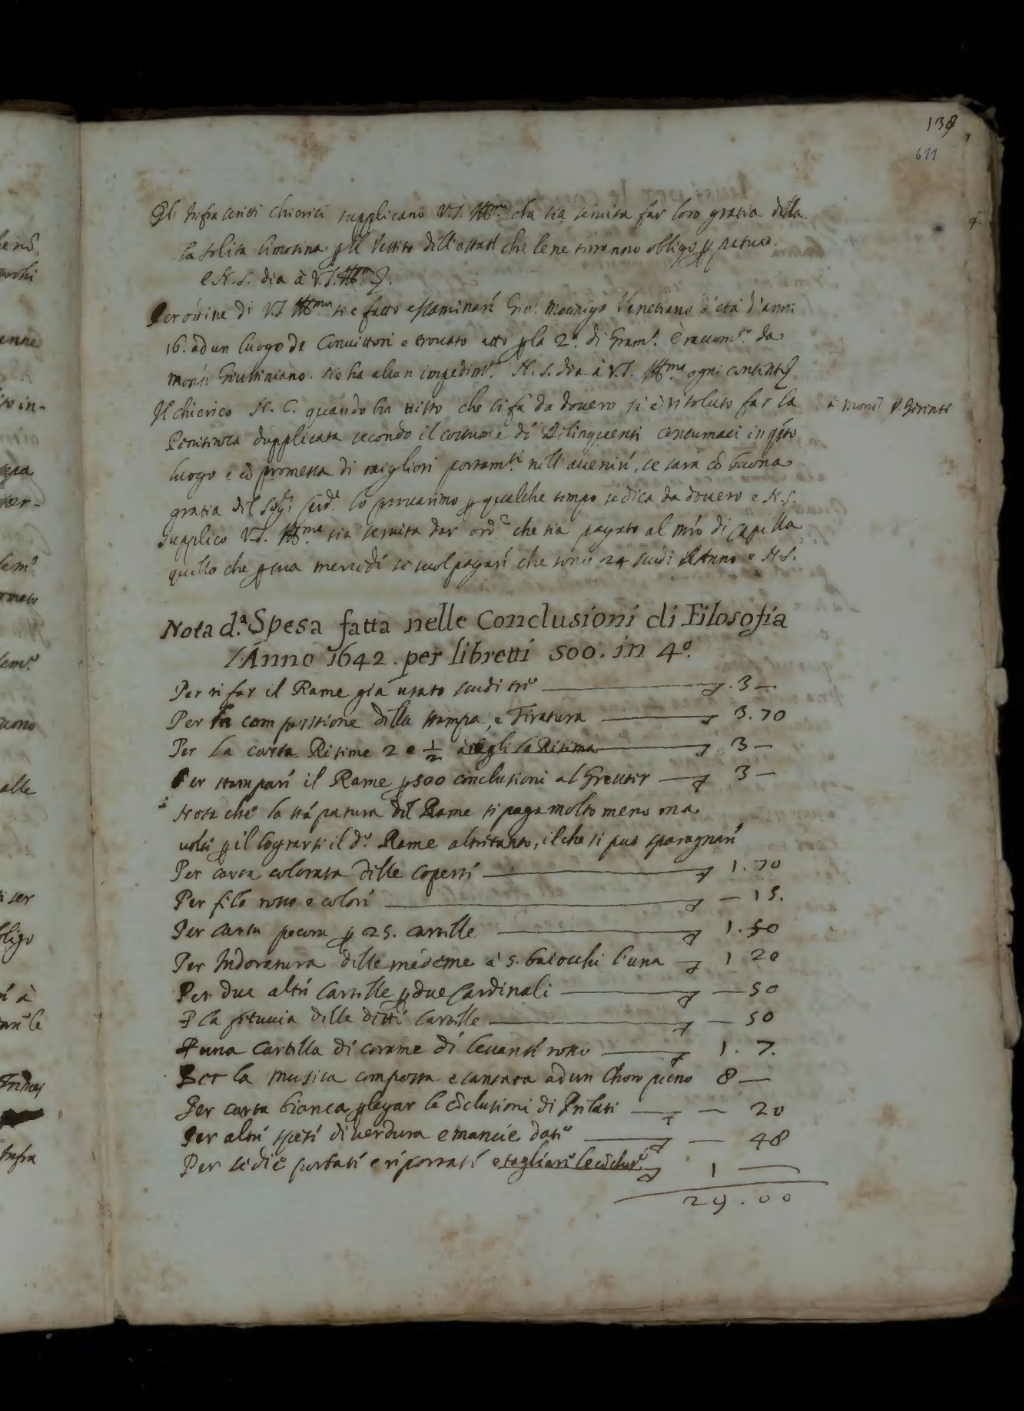 138
611
Gli Infrascritti chierici supplicano V.S. Ill.ma che sia servita far loro gratia della
la solita limosina p il Vestito dell'estate che le ne terranno obligo p petuo.
e N.S. dia à V.S. Ill.ma
Per ordine di V.S. Ill.ma si è fatto essaminare Gio: Mocenigo Venetiano d'età d'anni
16. ad un luogo de Convittori e trovato atto p la 2.a di Gram.a È racom.to da
Mons.r Giustiniano. Ne ha alcun impedim.to N.S. dia à V.S. Ill.ma ogni
Il chierico N. C. quando ha visto che si fà da dovero si è risoluto far la
Penitenza dupplicata secondo il costume di Delinquenti contumaci in qsto
luogo e cō promessa di migliori portam.ti nell'avenire, se sarà cō buona
gratia del lo provaremo p qualche tempo se dica da dovero e N.S.
supplico V.S. Ill.ma sia servita dar ord.e che sia pagato al mro di Capella
quello che p sua mercede se suol pagare che sono 24 scudi l'Anno e N.S.
à Mons.r
Nota d.a Spesa fatta nelle Conclusioni di Filosofia
l'Anno 1642. per libretti 500. in 4.o
Per rifar il Rame già usato scudi tre 3 —
Per la compositione della stampa e Tiratura 3.70
Per la carta Risime 2 e 1/2 la Risima 3 —
Per stampare il Rame p 500 conclusioni al Greuter 3 —
Nota che la stāpatura del Rame si paga molto meno ma
volse p il il d.o Rame altritanto, il che si può sparagnare
Per carta colorata delle coperte 1.70
Per filo rosso e colori — 15.
Per carta pecora p 25. cartelle 1.50
Per Indoratura delle medeme à 5. baiocchi l'una 1 20
Per due altre Cartelle p due Cardinali — 50
P la fetuccia delle dette Cartelle — 50
P una Cartella di corame di levante rosso 1. 7.
Per la musica composta e cantata ad un Choro pieno 8 —
Per carta bianca p legar le cōclusioni di Prelati — 20
Per altre spese di verdura e mancie date — 48
Per sedie portate e riportate e tagliare le 1 —
29.00